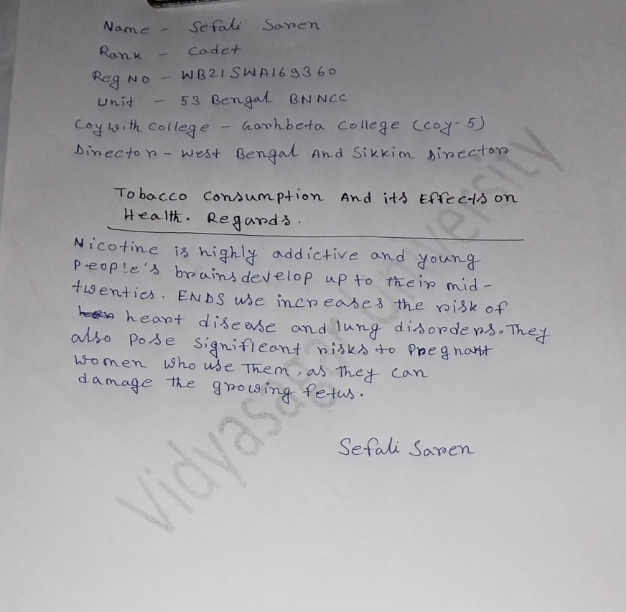 Name - Sefali Saren
Rank - Cadet
Reg No - WB21SWA169360
Unit - 53 Bengal BNNCC
Coy with College - Garhbeta College (coy-5)
Director - West Bengal And Sikkim Director
Tobacco Consumption And its Effects on
Health. Regards.
Nicotine is highly addictive and young
People's brains develop up to their mid-
twenties. ENDS use increases the risk of
heart disease and lung disorders. They
also Pose significant risks to Pregnant
women who use Them, as They can
damage the growing fetus.
Sefali Saren
Vidyasagar University